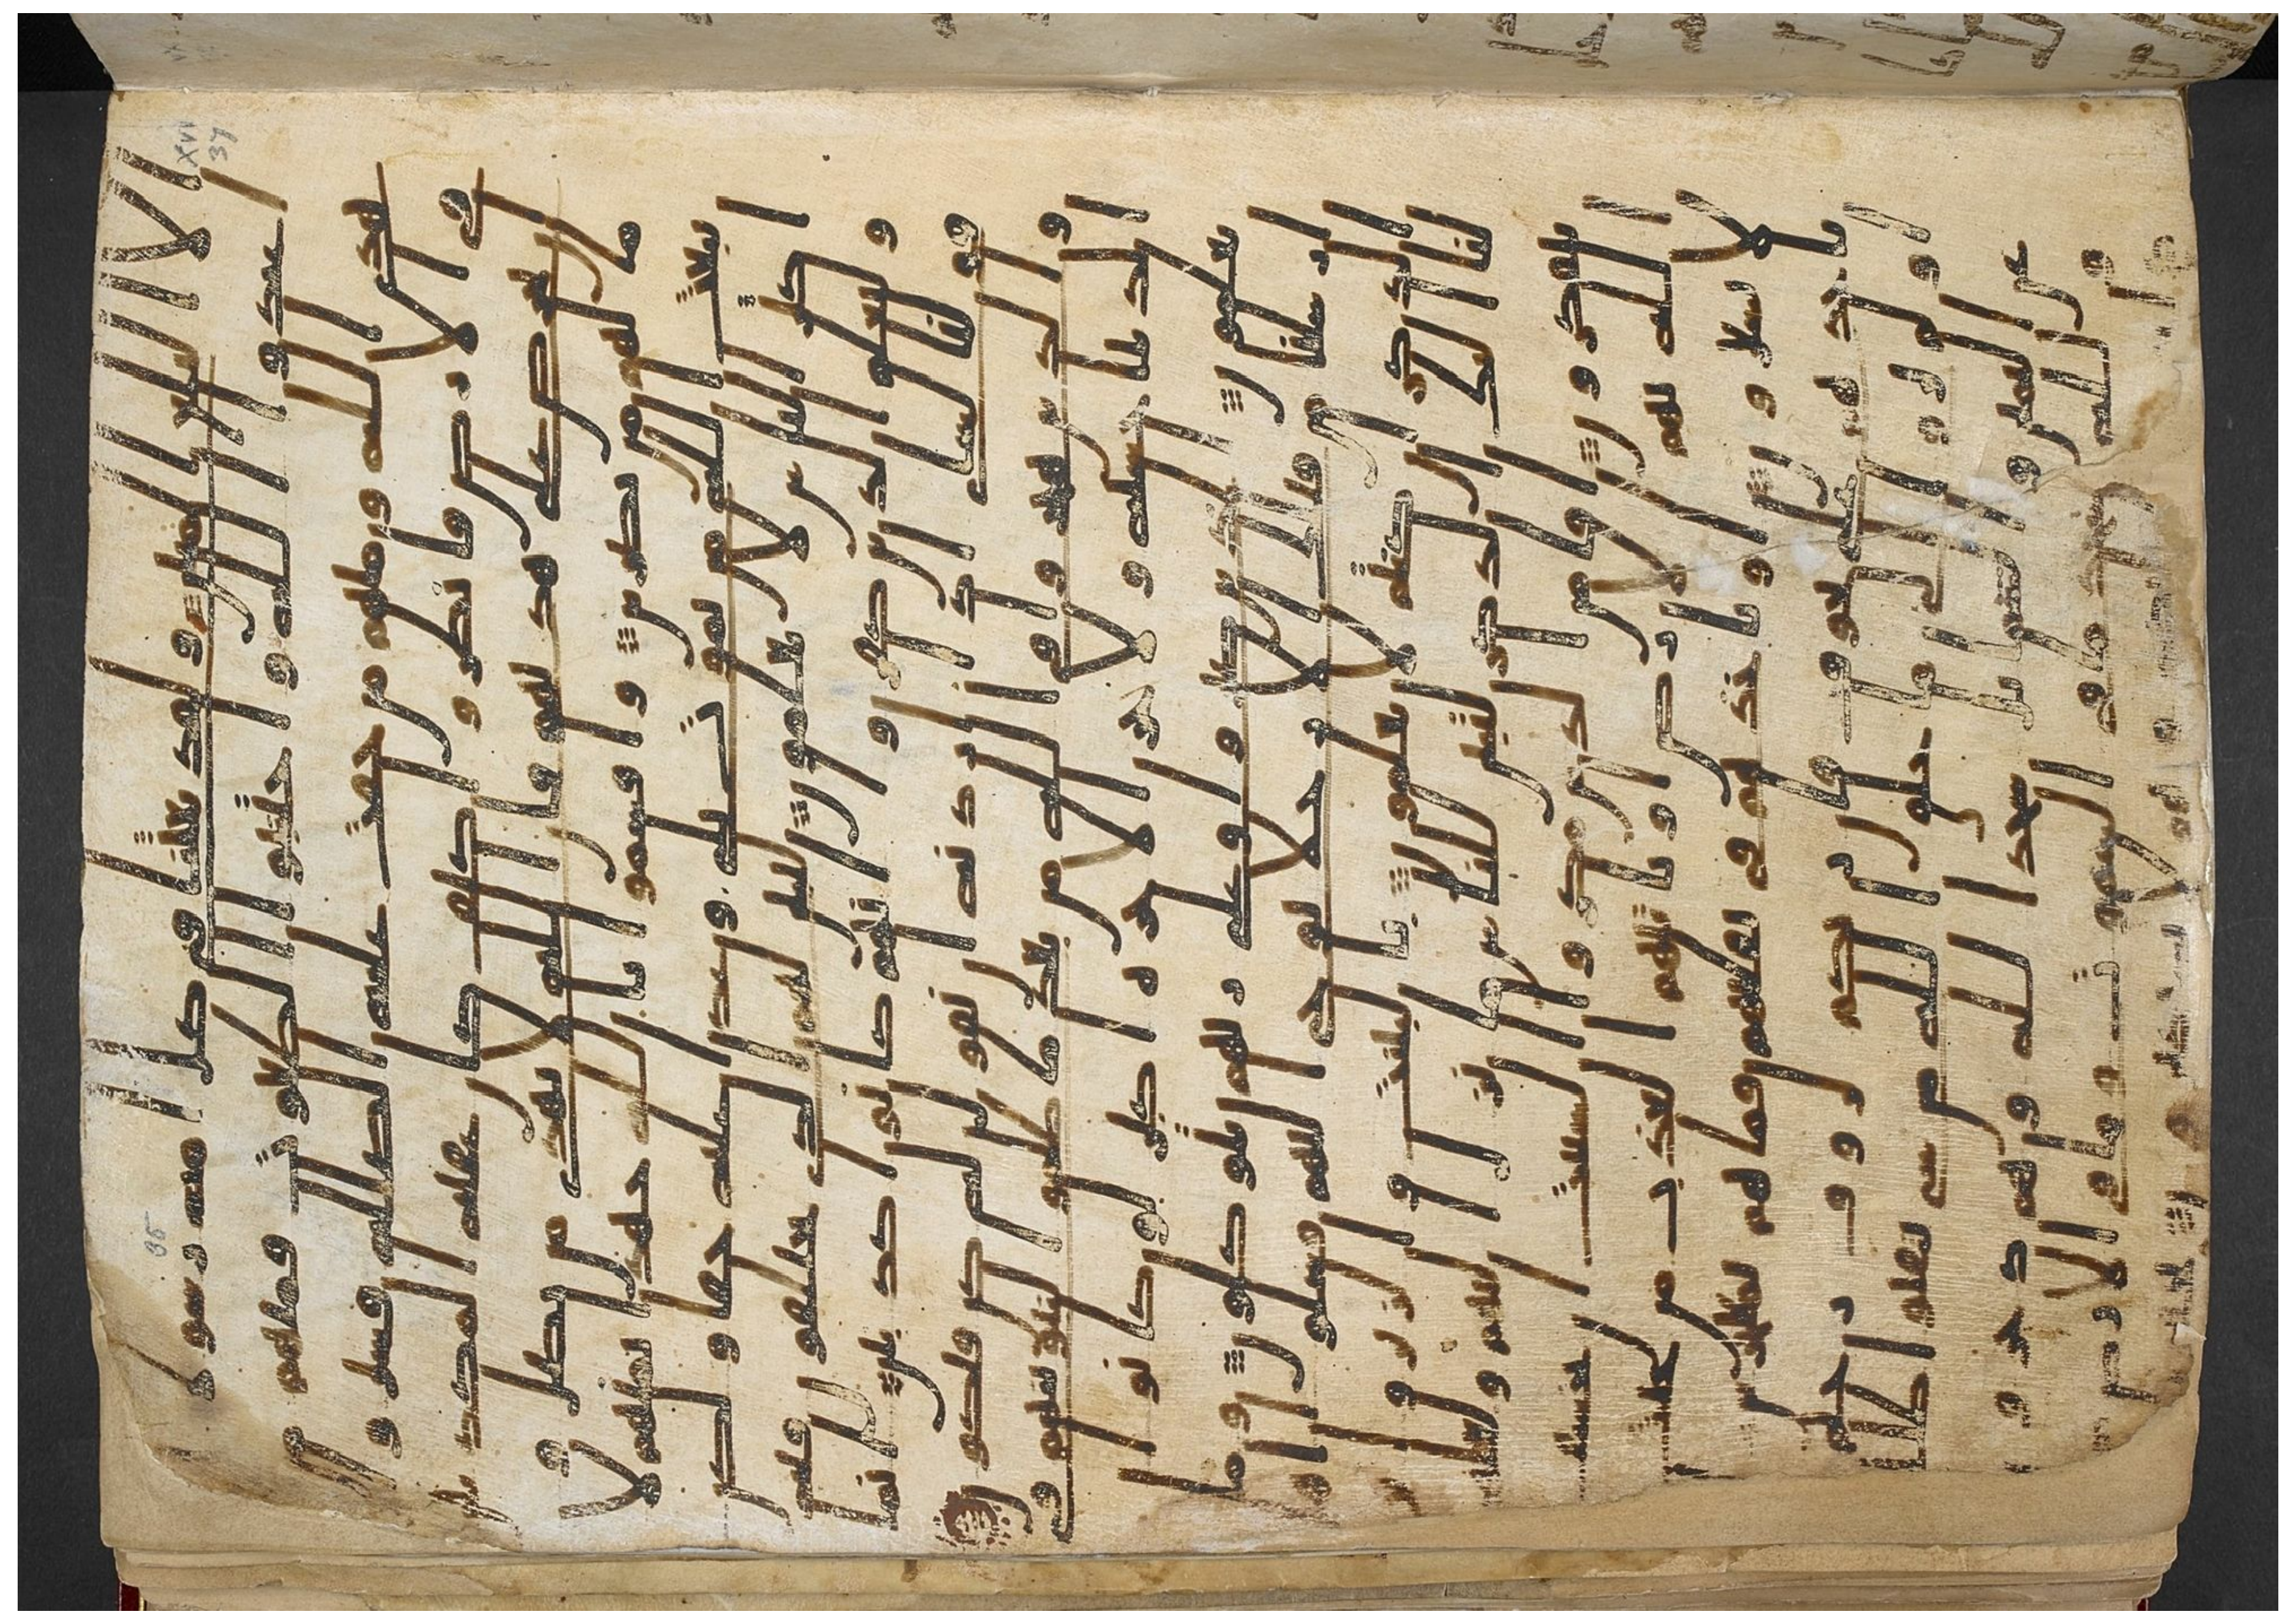 الا البلغ المبين ولقد بعثنا فى كل امه رسولا
ان اعبدوا الله واجتنبوا الطغوت فمنهم من
هدى الله ومنهم من حقت عليه الضلله فسيروا
فى الارض فانظروا كيف كان عقبه المكذبين
ان تحرص على هديهم فان الله لا يهدى من يضل و
ما لهم من نصرين واقسموا بالله جهد ايمنهم لا
يبعث الله من يموت بلى وعدا عليه حقا ولكن
اكثر الناس لا يعلمون ليبين لهم الذى يختلفون فيه
وليعلم الذين كفروا انهم كانوا كذبين انما
قولنا لشى اذا اردنه ان نقول له كن فيكون
والذين هجروا فى الله من بعد ما ظلموا لنبوينهم فى
الدنيا حسنه ولاجر الاخره اكبر لو كانوا
يعلمون الذين صبروا وعلى ربهم يتوكلون وما
ارسلنا من قبلك الا رجلا نوحى اليهم فسلوا ا
هل الذكر ان كنتم لا تعلمون بالبينت والزبر و
انزلنا اليك الذكر لتبين للناس ما نزل اليهم ولعلهم
يتفكرون افامن الذين مكروا السيت ان يخسف
الله بهم الارض او ياتيهم العذب من حيث
لا يشعرون او ياخذهم فى تقلبهم فما هم بمعجزين
او ياخذهم على تخوف فان ربكم لروف رحيم
او لم يروا الى ما خلق الله من شى يتفيوا ظلله
عن اليمين والشمايل سجدا لله وهم دخرون
ولله يسجد ما فى السموت وما فى الارض من
XVI
37